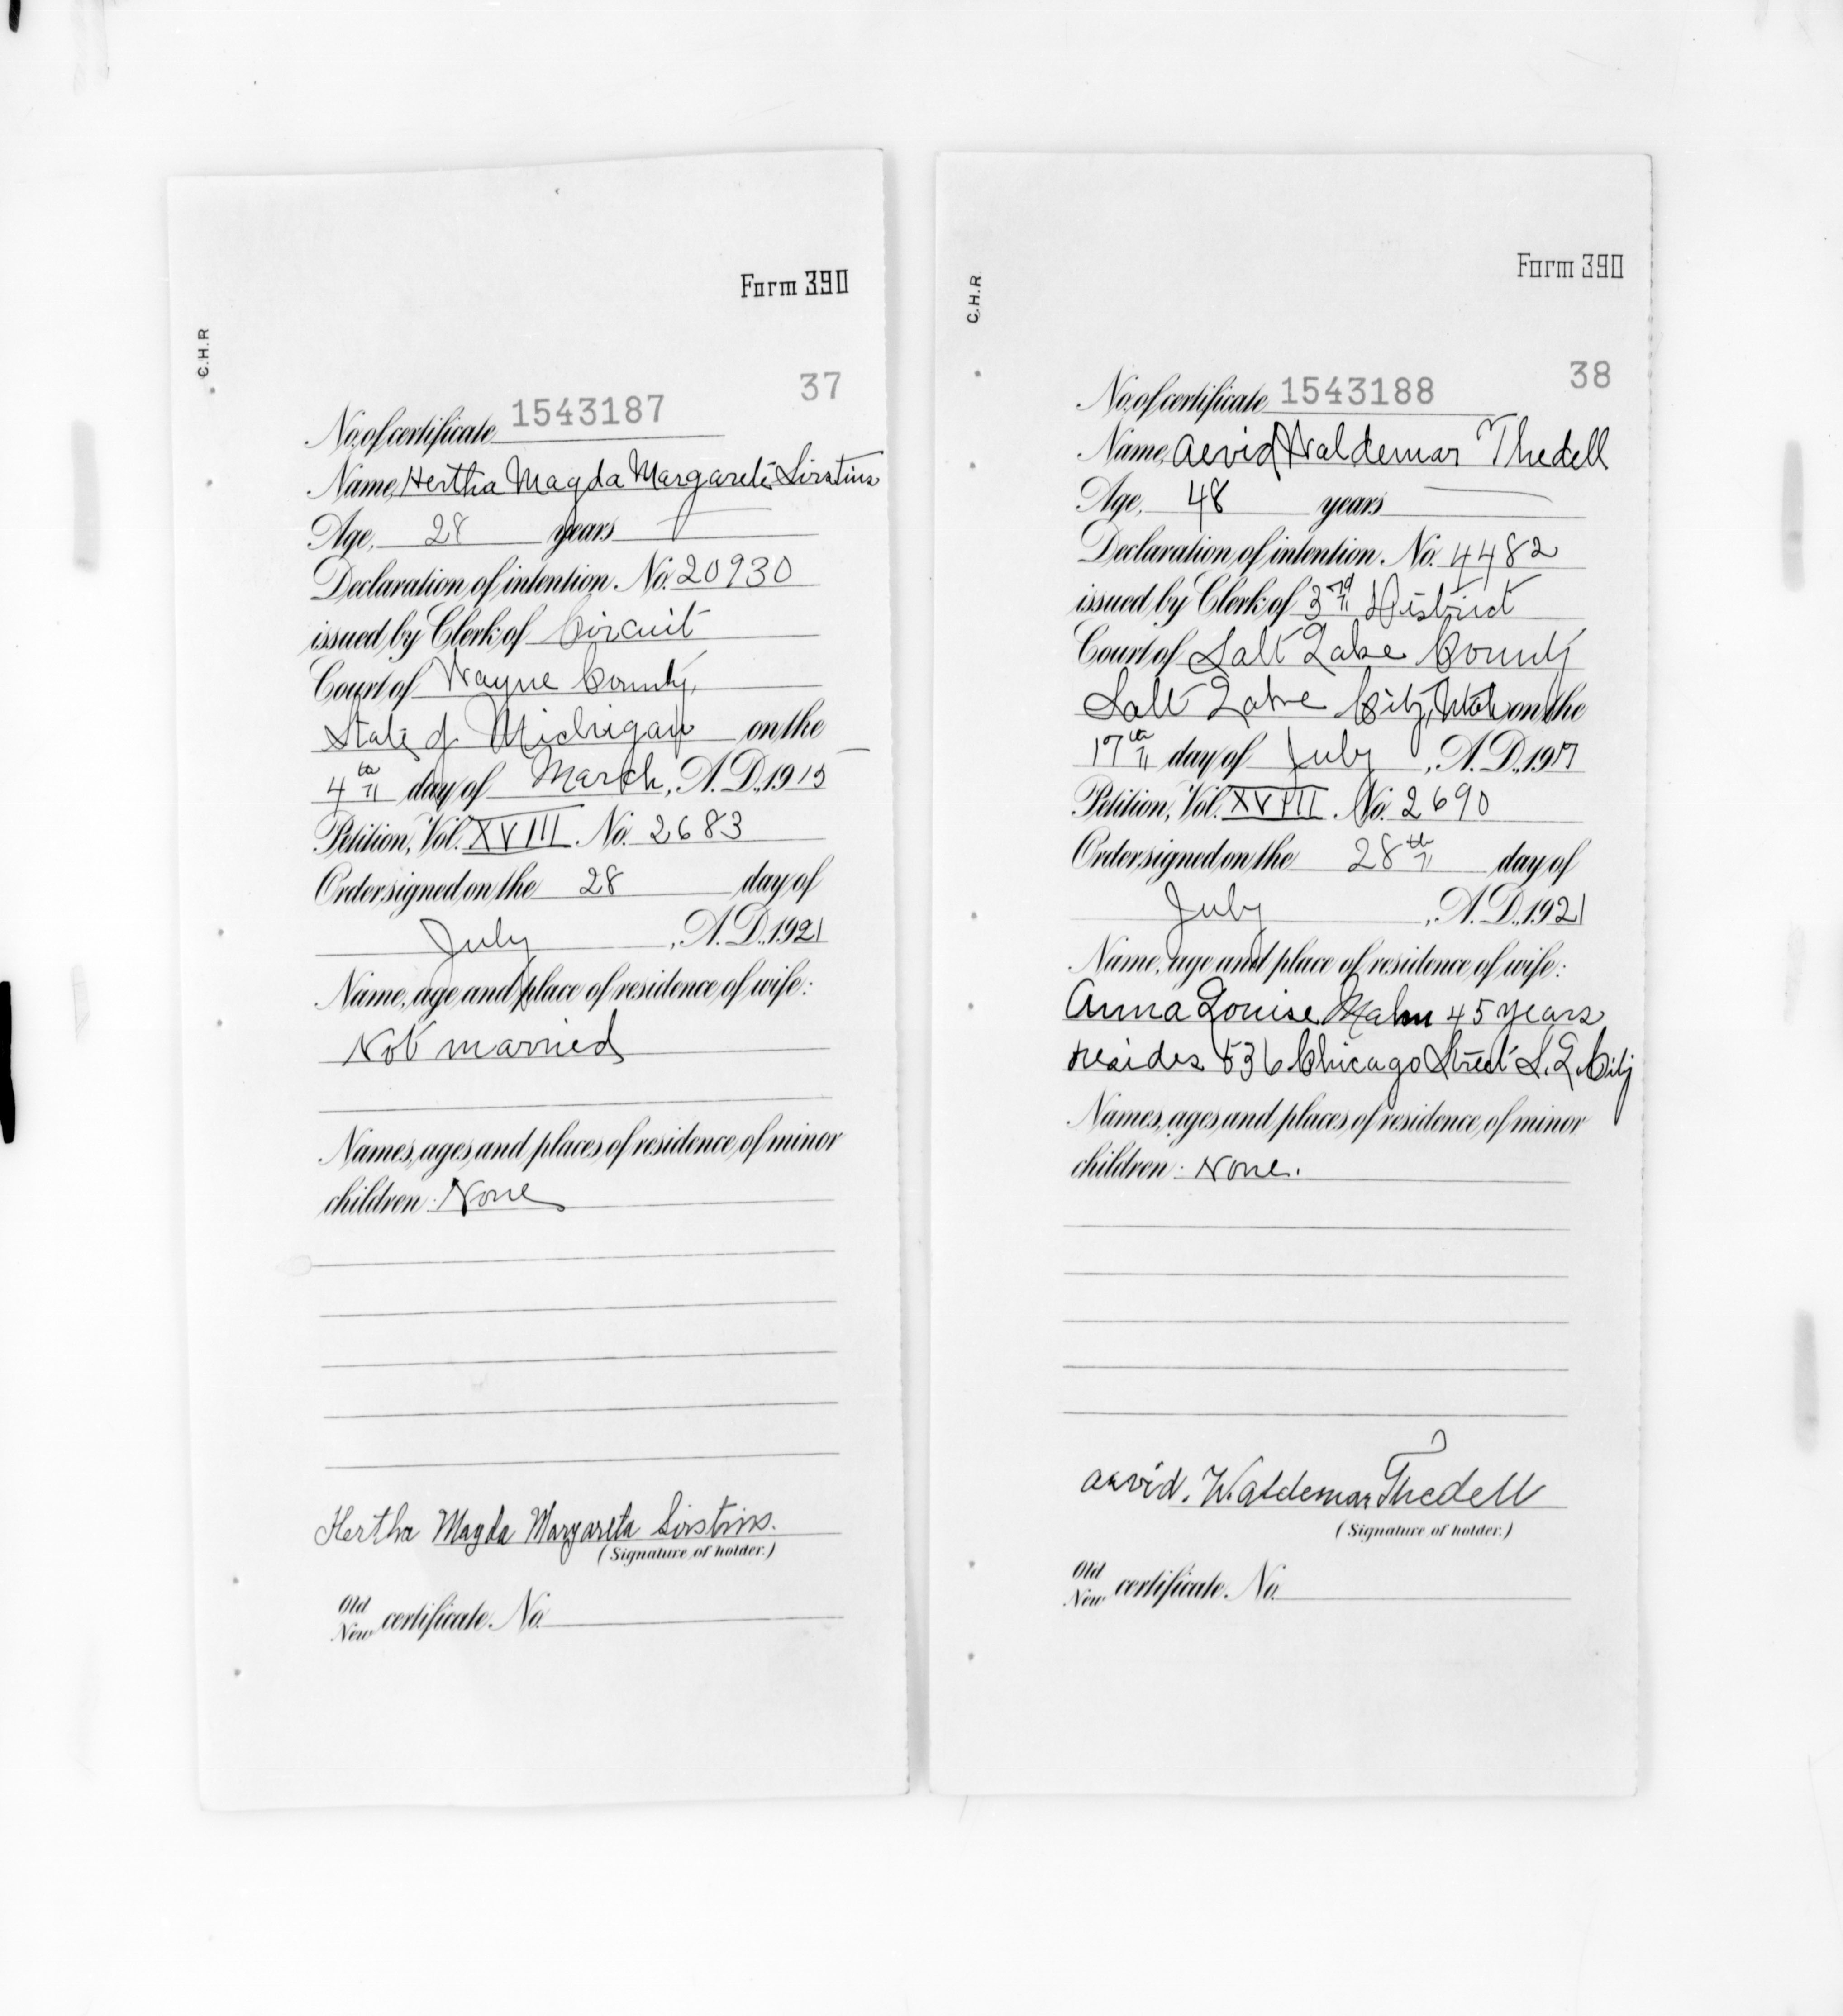 Form 390
C.H.R
37
No. of certificate 1543187
Name, Hertha Magda Margareta Sirstins
Age, 28 years
Declaration of intention. No. 20930
issued by Clerk of Circuit
Court of Wayne County,
State of Michigan on the
4th day of March, A.D. 1915
Petition, Vol. XVIII. No. 2683
Order signed on the 28 day of
July, A.D. 1921
Name, age and place of residence of wife:
Not married
Names, ages and places of residence of minor
children: None
Hertha Magda Margareta Sirstins.
(Signature of holder.)
Old
New certificate. No.
Form 390
C.H.R
38
No. of certificate 1543188
Name, Arvid Waldemar Thedell
Age, 48 years
Declaration of intention. No. 4482
issued by Clerk of 3rd District
Court of Salt Lake County
Salt Lake City, Utah on the
17th day of July, A.D. 1917
Petition, Vol. XVIII. No. 2690
Order signed on the 28th day of
July, A.D. 1921
Name, age and place of residence of wife:
Anna Louise Malm 45 years
resides 536 Chicago Street S.L. City
Names, ages and places of residence of minor
children: None.
Arvid. Waldemar Thedell
(Signature of holder.)
Old
New certificate. No.